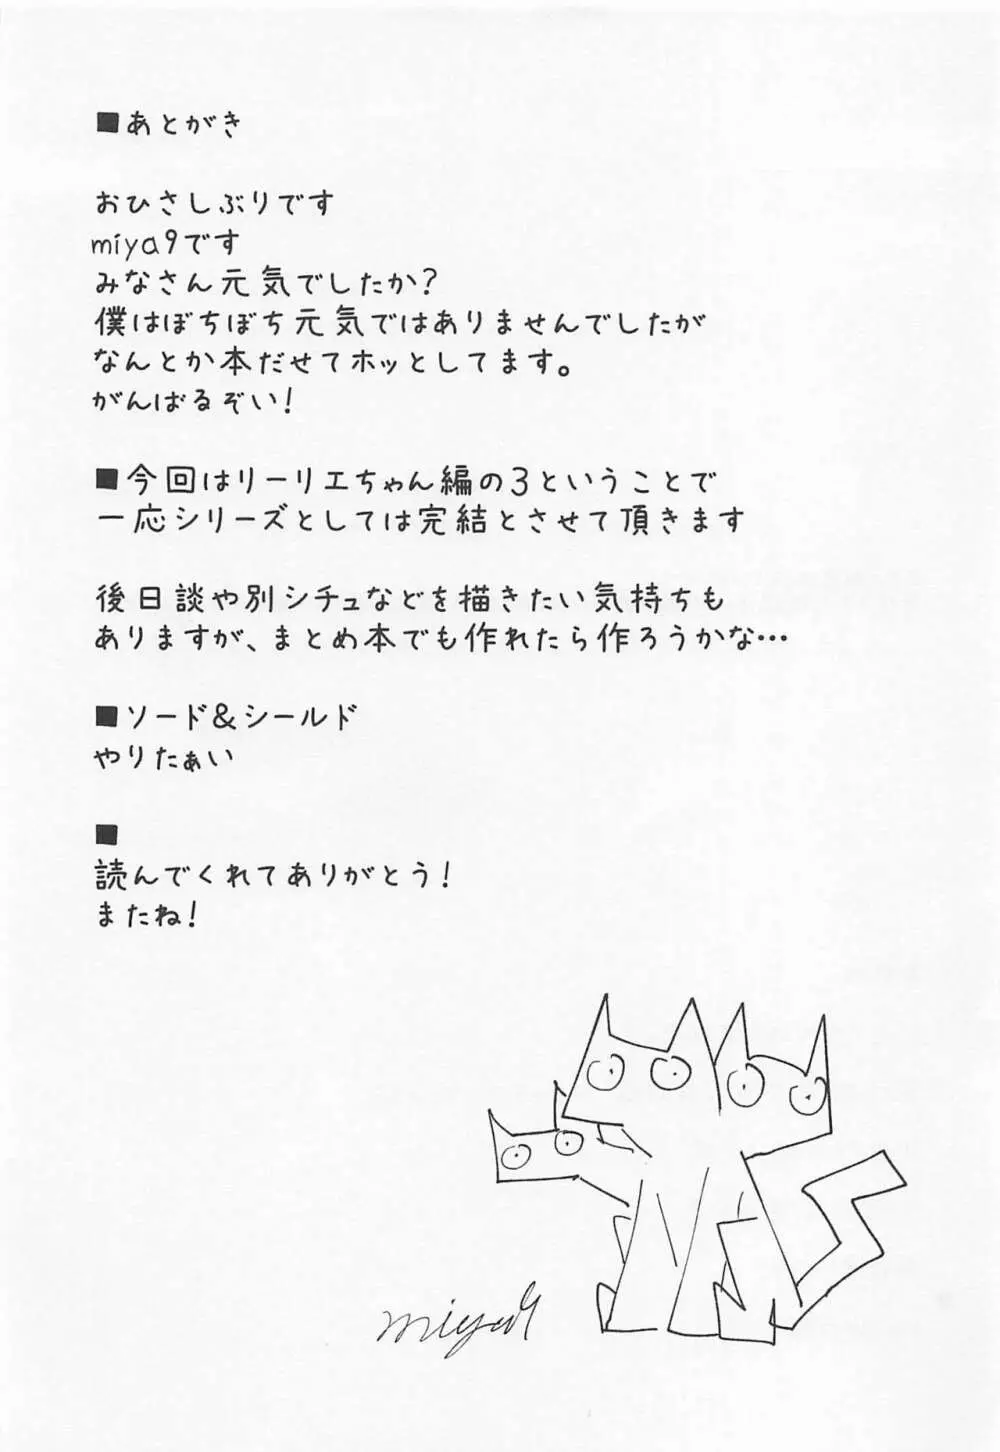 ■あとがき
おひさしぶりです
miya9です
みなさん元気でしたか?
僕はぼちぼち元気ではありませんでしたが
なんとか本だせてホッとしてます。
がんばるぞい!
■今回はリーリエちゃん編の3ということで
一応シリーズとしては完結とさせて頂きます
後日談や別シチュなどを描きたい気持ちも
ありますが、まとめ本でも作れたら作ろうかな…
■ソード&シールド
やりたぁい
■
読んでくれてありがとう!
またね!
miya9